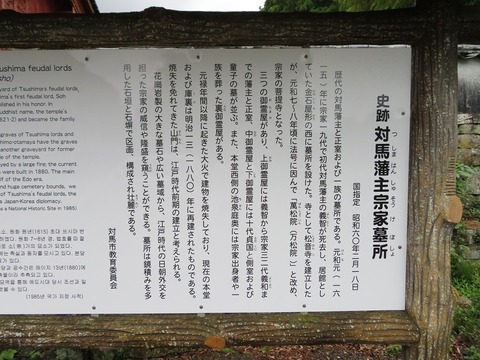 史跡 対馬藩主宗家墓所
つしまはんしゅそうけぼしょ
国指定 昭和六〇年二月一八日
歴代の対馬藩主と正室および一族の墓所である。元和元(一六
一五)年に宗家一九代で初代対馬藩主の義智が死去し、居館とし
ていた金石屋形の西に墓所を設けた。寺として松音寺を建立した
が、元和七~八年頃に法号に因んで「萬松院(万松院)」と改め、
宗家の菩提寺となった。
三つの御霊屋があり、上御霊屋には義智から宗家三二代義和ま
での藩主と正室、中御霊屋と下御霊屋には十代貞国と側室および
童子の墓が並ぶ。また、本堂西側の池泉庭奥には宗家出身者や一
族を葬った裏御霊屋がある。
元禄年間以降に起きた火で建物を焼失しており、現在の本堂
および庫裏は明治一三(一八八〇)年に再建されたものである。
焼失を免れてきた山門は、江戸時代前期の建立と考えられる。
花崗岩製の大きな墓石や広い墓域から、江戸時代の日朝外交を
担った宗家の威信や隆盛を窺うことができる。墓所は鏡積みを多
用した石垣と石塀で区画、構成され壮麗である。
対馬市教育委員会
ushima feudal lords
sho)
yard of Tsushima's feudal
ma's first feudal lord, Soh
blished in his honor. In
uddhist name, the temple's
621-2) and became the family
graves of Tsushima lords and
imo-otamaya have the graves
another graveyard for former
e of the temple.
yed by a large fire; the current
were built in 1880. The main
f of the Edo era.
nd huge cemetery bounds, we
of Tsushima's feudal lords, the
e Japan-Korea diplomacy.
a National Historic Site in 1985)
(1985년 국가 지정 사적)